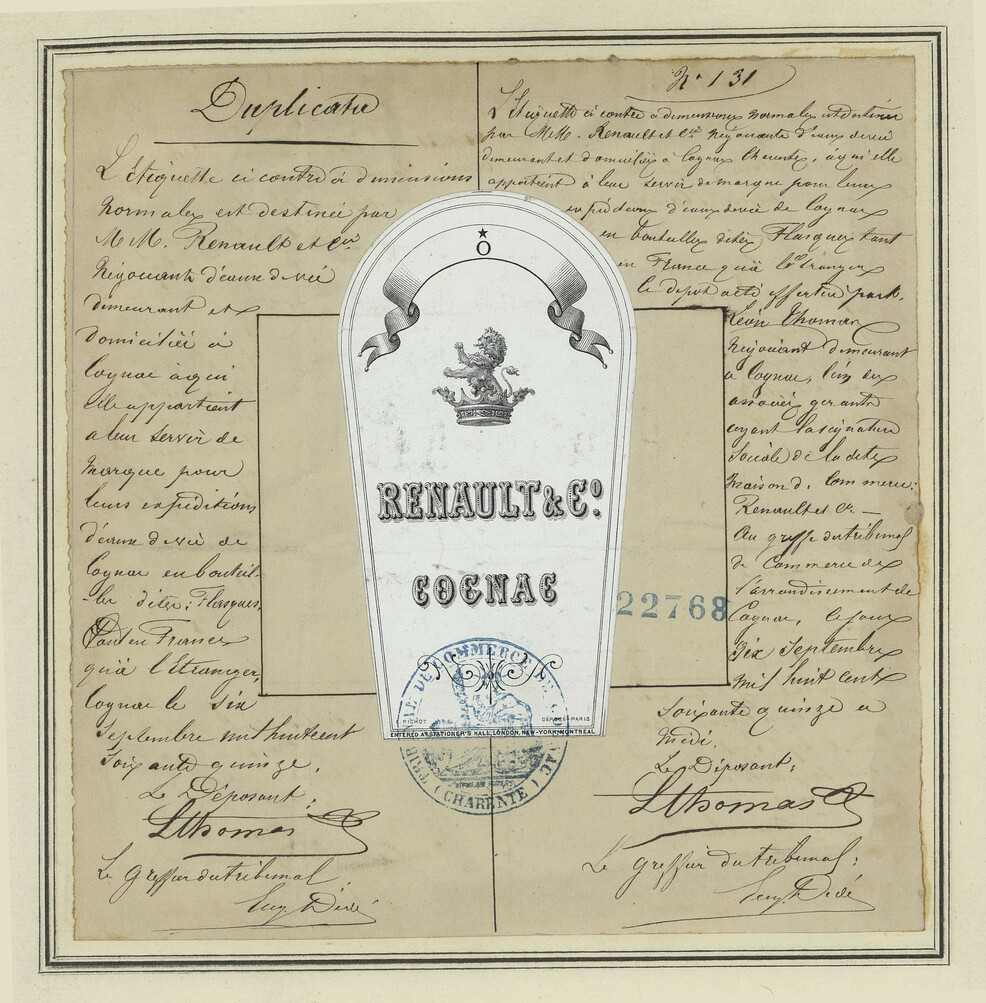 Duplicata
L'étiquette ci contre à dimensions
normales est destinée par
M.M. Renault et Cie
Négociants d'eaux de vie
demeurant et
domiciliés à
Cognac à qui
elle appartient
à leur servir de
marque pour
leurs expéditions
d'eaux de vie de
Cognac en bouteil-
les dites: Flasques,
tant en France
qu'à l'Etranger,
Cognac le six
Septembre mil huit cent
soixante quinze.
Le Déposant:
LThomas
Le greffier du tribunal,
Eug. Dédé
N° 131
L'étiquette ci contre à dimensions normales est destinée
par M.M. Renault et Cie Négociants d'eaux de vie
demeurant et domiciliés à Cognac Charente, à qui elle
appartient à leur servir de marque pour leurs
expéditions d'eaux de vie de Cognac
en bouteilles dites Flasques tant
en France qu'à l'étranger
le dépôt a été effectué par M.
Léon Thomas
Négociant demeurant
à Cognac, l'un des
associés gérants
ayant la signature
sociale de la dite
maison de commerce:
Renault et Cie —
Au greffe du tribunal
de Commerce de
l'arrondissement de
Cognac, le jour
six Septembre
mil huit cent
soixante quinze à
midi.
Le Déposant:
LThomas
Le greffier du tribunal:
Eug. Dédé
O
RENAULT & Co.
COGNAC
22768
PICHOT
DÉPOSÉ-PARIS
ENTERED AT STATIONER'S HALL, LONDON, NEW-YORK, MONTREAL
TRIBUNAL DU COMMERCE DE COGNAC
(CHARENTE)